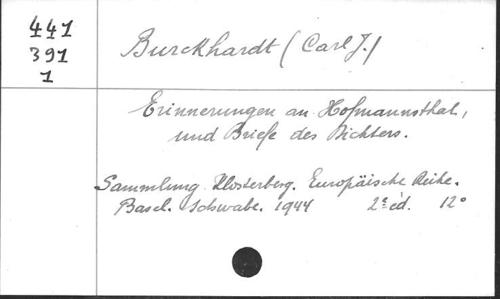 441
391
1
Burckhardt (Carl J.)
Erinnerungen an Hofmannsthal,
und Briefe des Dichters.
Sammlung Klosterberg. Europäische Reihe.
Basel. Schwabe. 1944 2e éd. 12°